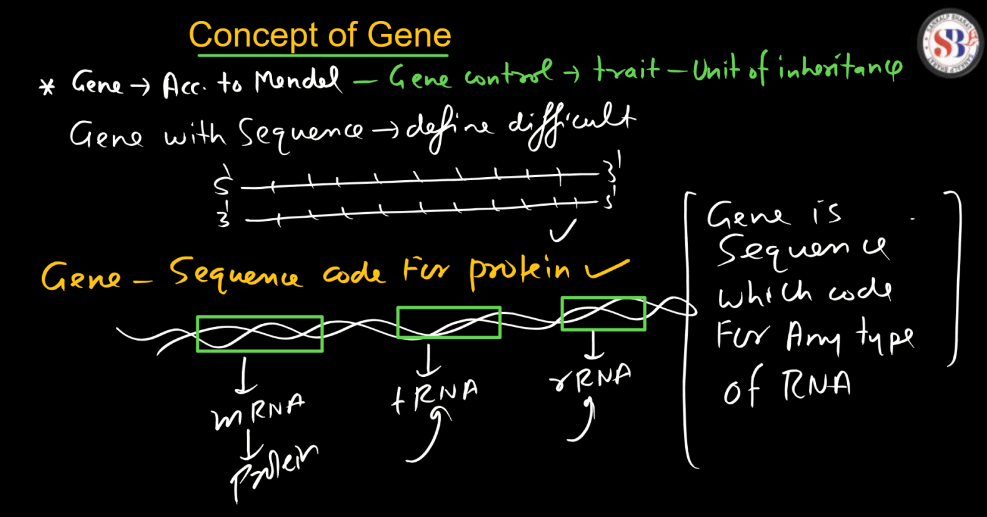 Concept of Gene
SB
* Gene → Acc. to Mendel – Gene control → trait – Unit of inheritance
Gene with Sequence → define difficult
5' 3'
3' 5'
Gene – Sequence code For protein ✓
mRNA
Protein
tRNA
rRNA
Gene is
Sequence
which code
For Any type
of RNA